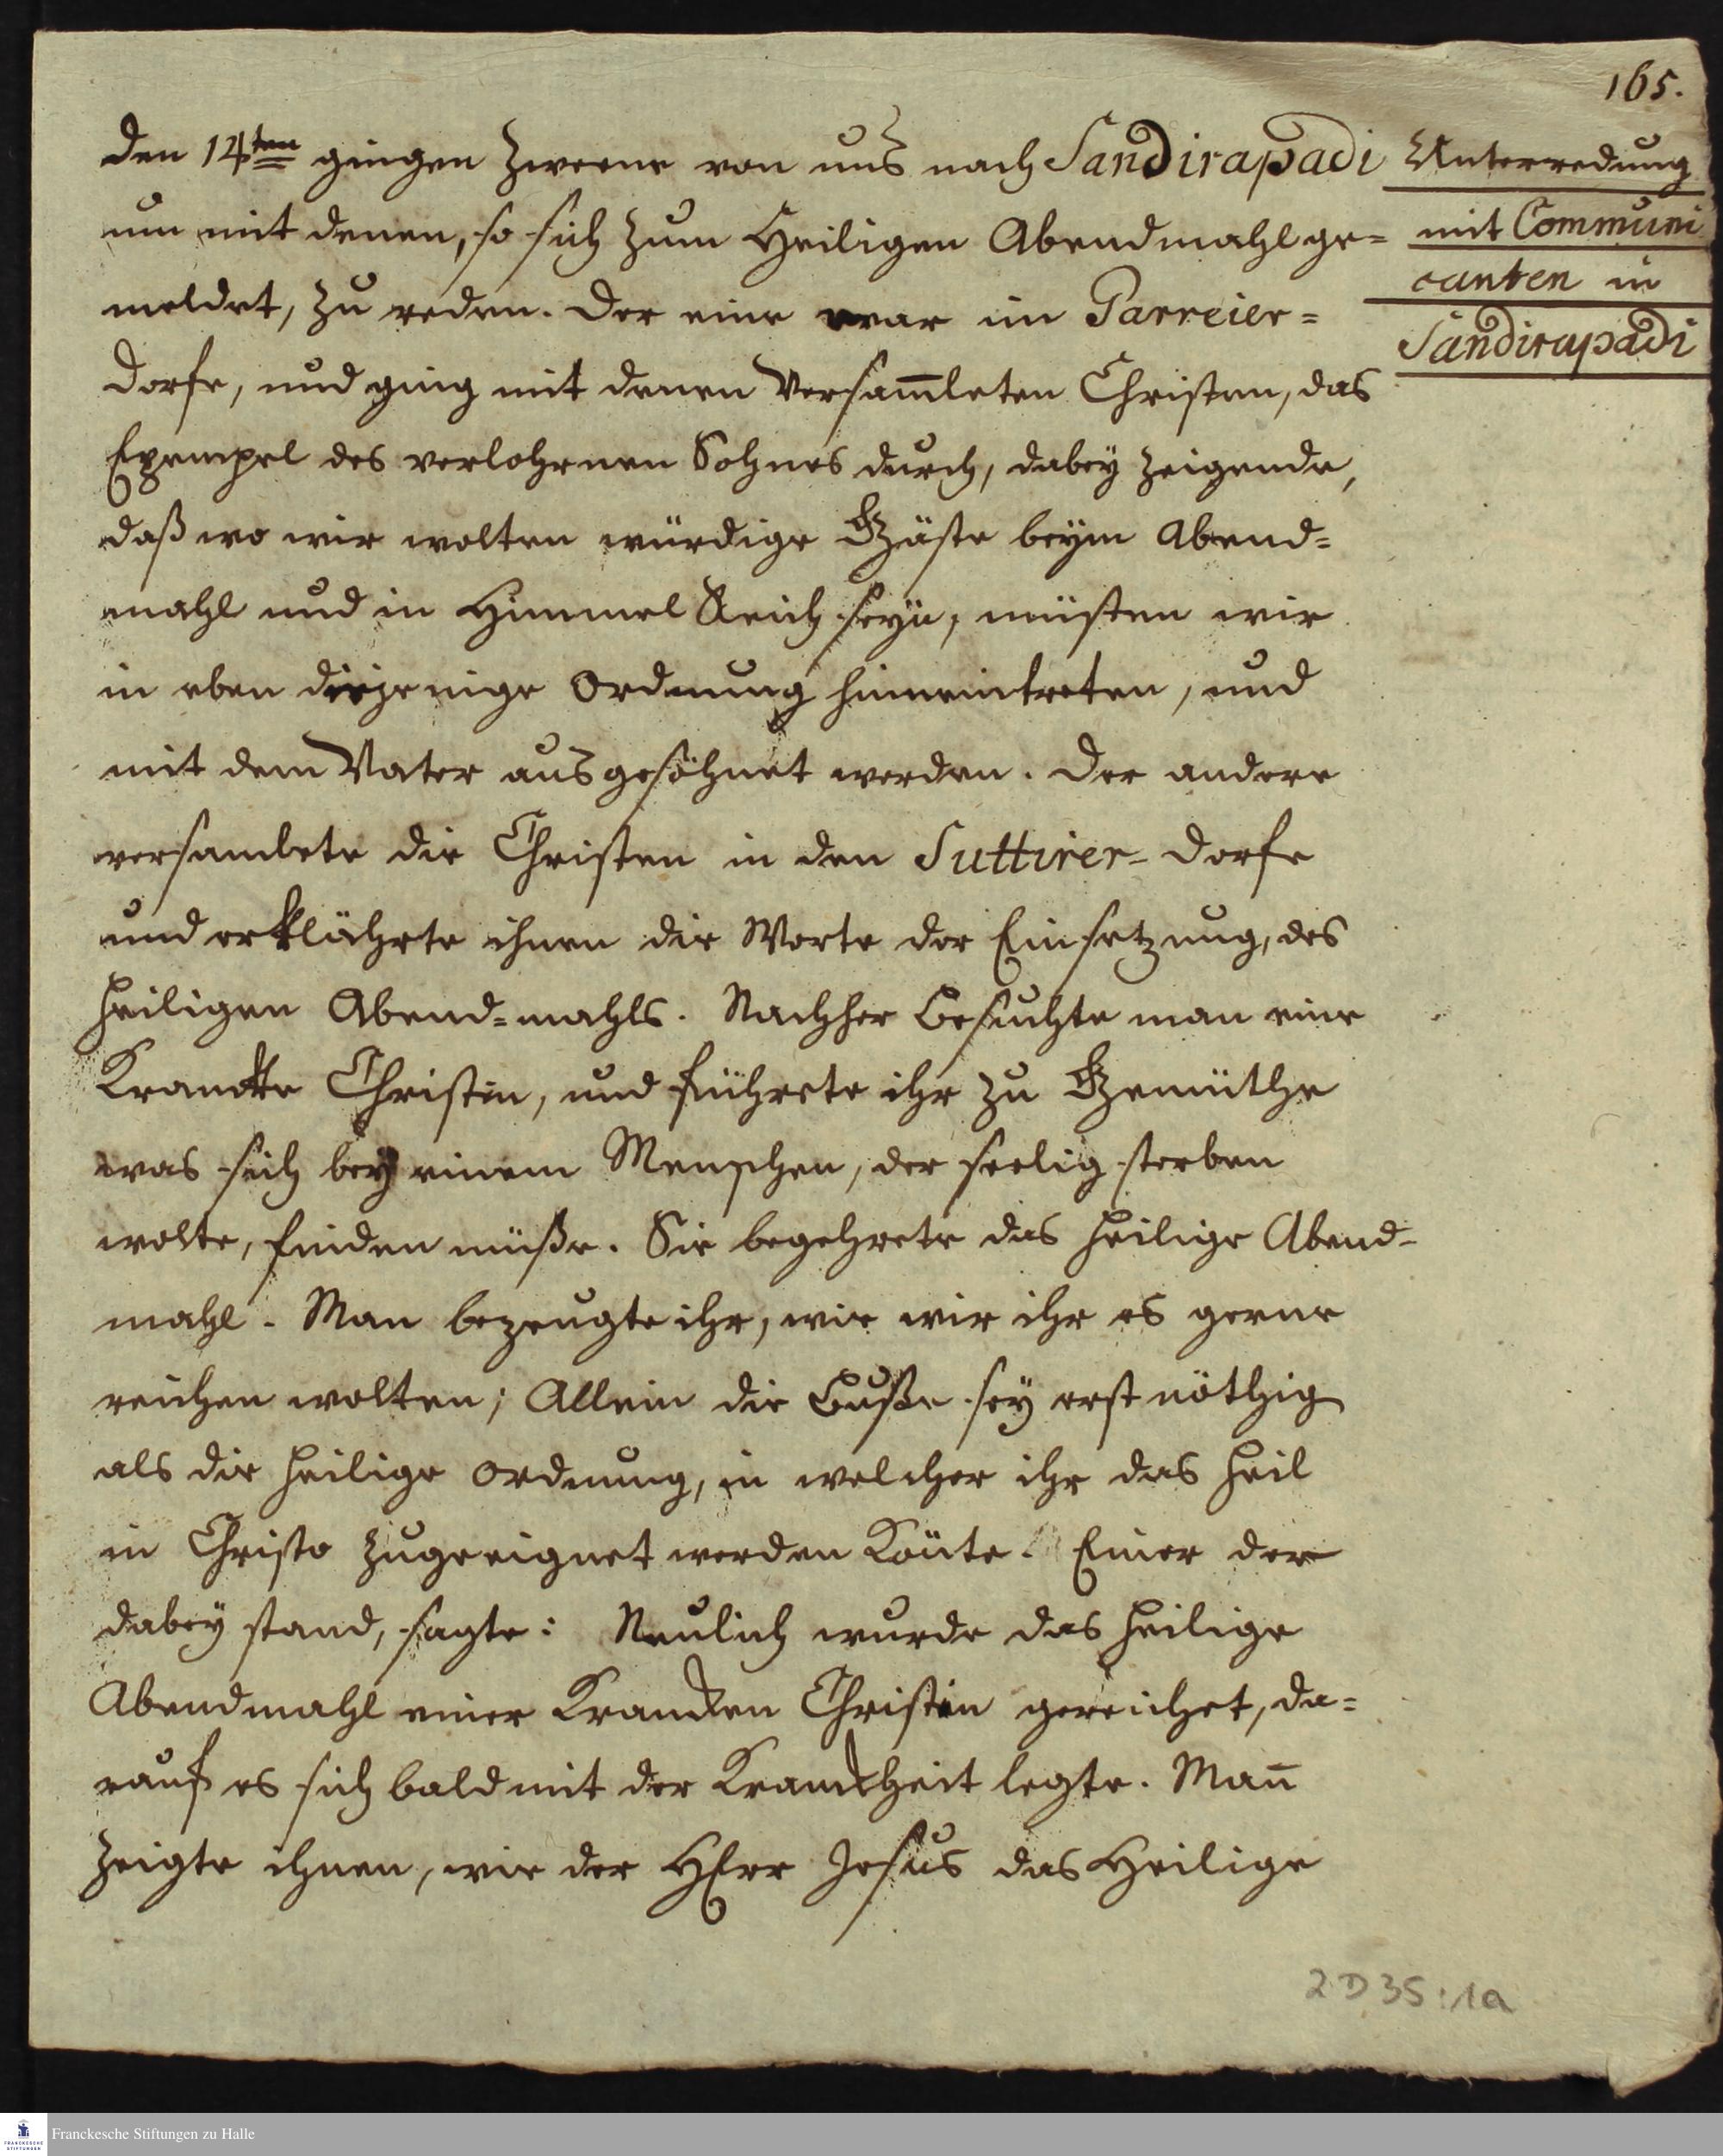 165.
Den 14ten gingen Zweene von uns nach Sandirapadi
um mit denen, so sich zum Heiligen Abendmahl ge=
meldet, zu reden. Der eine war im Parreier=
Dorfe, und ging mit denen Versam̄leten Christen, das
Exempel des verlohrnen Sohnes durch, dabey zeigende,
daß wo wir wolten würdige Gäste beym Abend=
mahl und in Himmel Reich seyn, müsten wir
in eben diejenige Ordnung hineintreten, und
mit dem Vater ausgesöhnet werden. Der andere
versamlete die Christen in den Suttirer= Dorfe
und erklährte ihnen die Worte der Einsetzung, des
Heiligen Abend=mahls. Nachher Besuchte man eine
Krancke Christin, und führete ihr zu Gemüthe
was sich bey einem Menschen, der seelig sterben
wolte, finden müße. Sie begehrete das Heilige Abend-
mahl. Man bezeugte ihr, wie wir ihr es gerne
reichen wolten; Allein die Buße sey erst nöthig
als die Heilige Ordnung, in welcher ihr das Heil
in Christo zugeeignet werden Kön̄te. Einer der
dabey stand, sagte: Neulich wurde das Heilige
Abendmahl einer Krancken Christin gereichet, da=
rauf es sich bald mit der Kranckheit legte. Man̄
zeigte ihnen, wie der HErr Jesus das Heilige
Unterredung
mit Communi
canten in
Sandirapadi
2 D 35 : 1a
Franckesche Stiftungen zu Halle
FRANCKESCHE
STIFTUNGEN